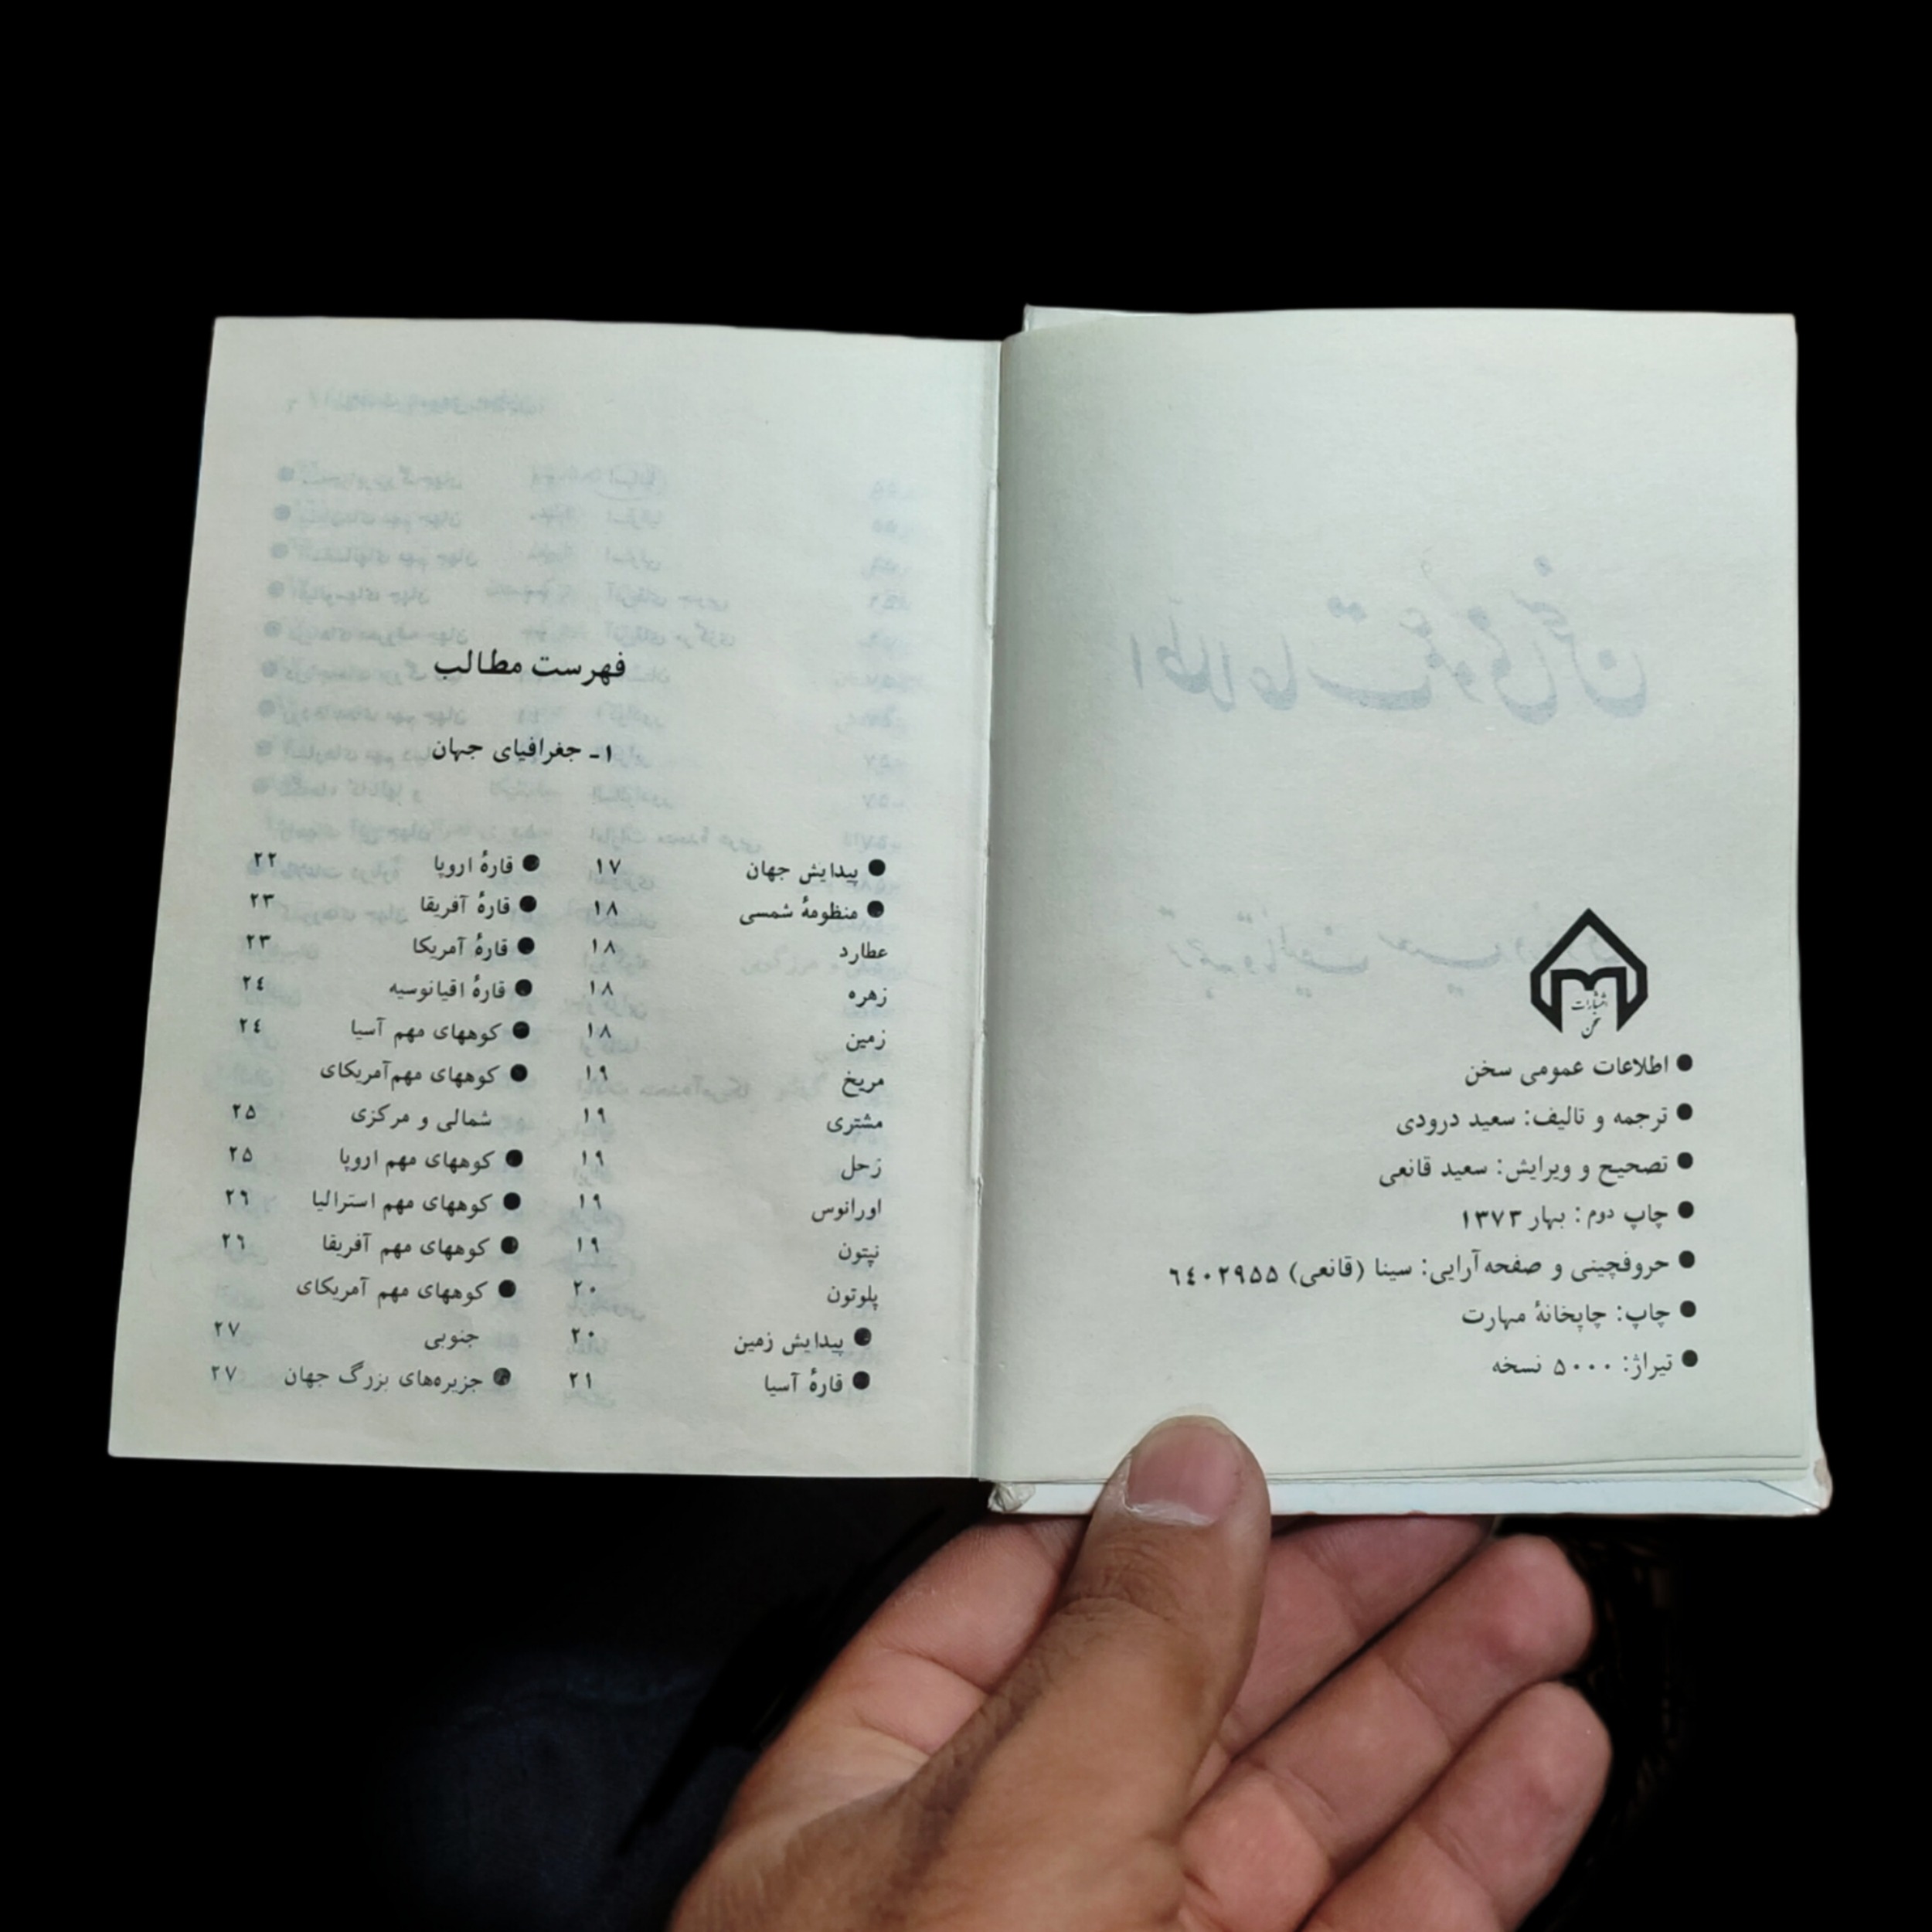 انتشارات
سخن
● اطلاعات عمومی سخن
● ترجمه و تالیف: سعید درودی
● تصحیح و ویرایش: سعید قانعی
● چاپ دوم: بهار ۱۳۷۳
● حروفچینی و صفحه‌آرایی: سینا (قانعی) ۶۴۰۲۹۵۵
● چاپ: چاپخانهٔ مهارت
● تیراژ: ۵۰۰۰ نسخه
فهرست مطالب
۱ـ جغرافیای جهان
● پیدایش جهان ۱۷
● منظومهٔ شمسی ۱۸
عطارد ۱۸
زهره ۱۸
زمین ۱۸
مریخ ۱۹
مشتری ۱۹
زحل ۱۹
اورانوس ۱۹
نپتون ۱۹
پلوتون ۲۰
● پیدایش زمین ۲۰
● قارهٔ آسیا ۲۱
● قارهٔ اروپا ۲۲
● قارهٔ آفریقا ۲۳
● قارهٔ آمریکا ۲۳
● قارهٔ اقیانوسیه ۲۴
● کوههای مهم آسیا ۲۴
● کوههای مهم‌آمریکای
شمالی و مرکزی ۲۵
● کوههای مهم اروپا ۲۵
● کوههای مهم استرالیا ۲۶
● کوههای مهم آفریقا ۲۶
● کوههای مهم آمریکای
جنوبی ۲۷
● جزیره‌های بزرگ جهان ۲۷